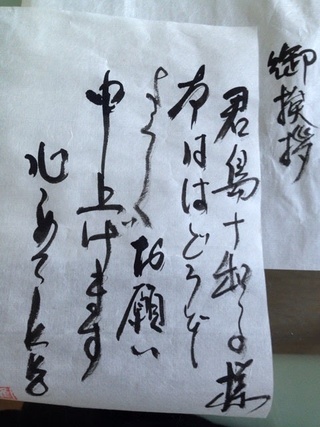 御挨拶
君島十和子様
本日はどうぞ
よろしくお願い
申し上げます